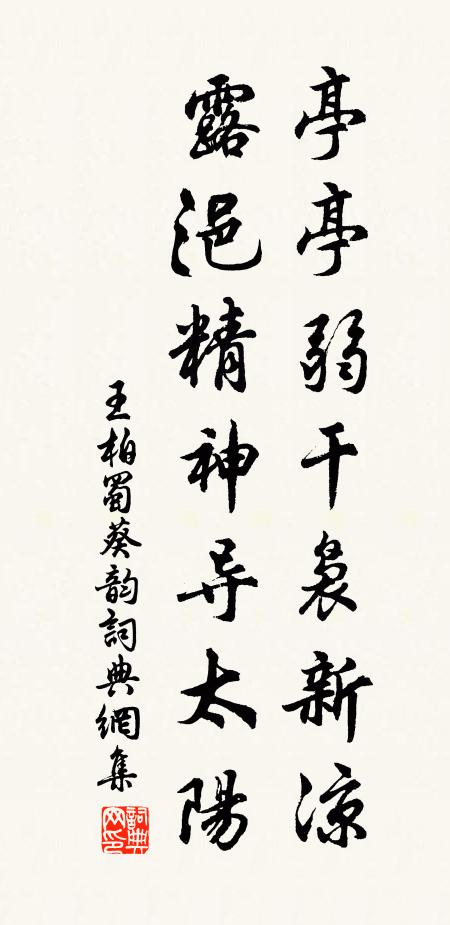 亭亭弱干袅新凉
露浥精神导太陽
王柏蜀葵韵詞典網集
詞典网印